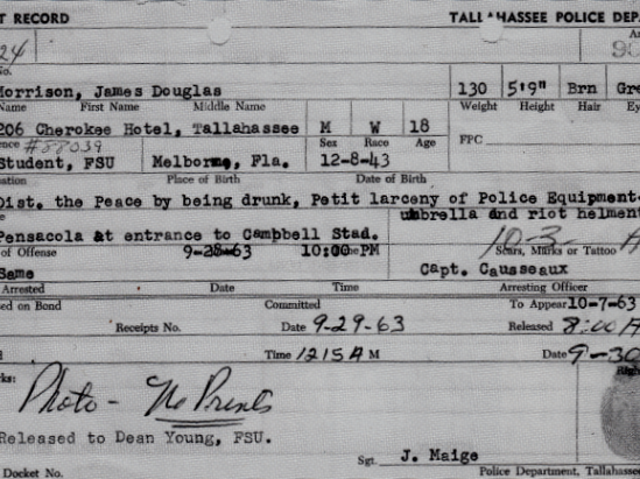 T RECORD TALLAHASSEE POLICE DEP
24
No.
Morrison, James Douglas 130 5'9" Brn Gre
Name First Name Middle Name Weight Height Hair Ey
206 Cherokee Hotel, Tallahassee M W 18
ence #88039 Sex Race Age FPC
Student, FSU Melborne, Fla. 12-8-43
ation Place of Birth Date of Birth
Dist. the Peace by being drunk, Petit larceny of Police Equipment-
e umbrella and riot helmen
Pensacola at entrance to Campbell Stad. 10-3-
of Offense 9-28-63 10:00 PM Scars, Marks or Tattoo
Same Capt. Causseaux
Arrested Date Time Arresting Officer
ed on Bond Committed To Appear 10-7-63
Receipts No. Date 9-29-63 Released 8:00 A
Time 1215 A M Date 9-30
ks: Photo - No Prints Righ
Released to Dean Young, FSU.
Sgt. J. Maige
Docket No. Police Department, Tallahassee